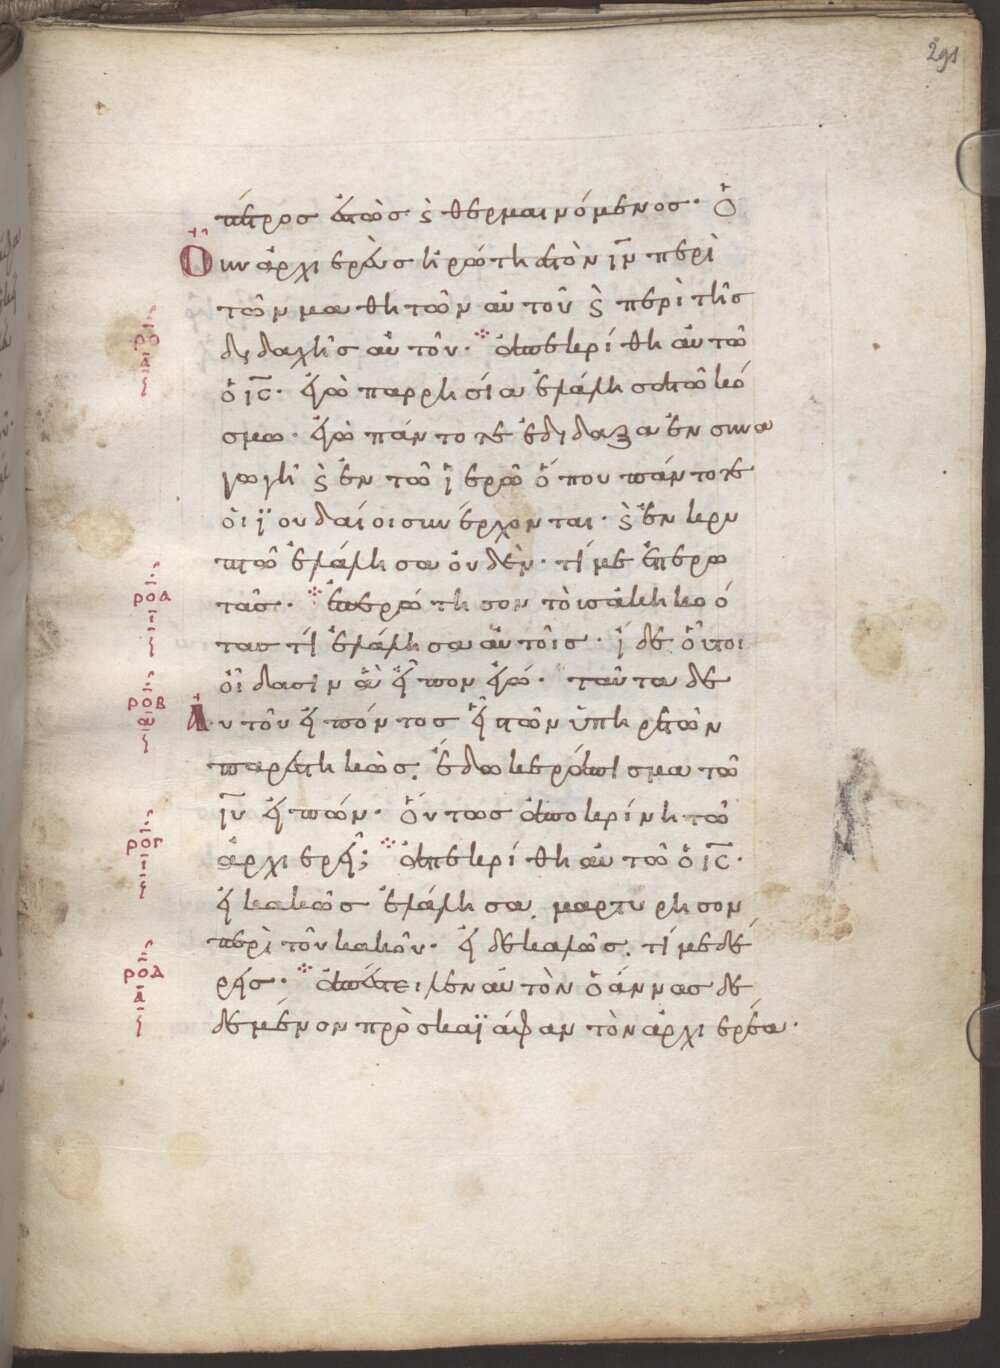 291
πέτρος ἑστὼς ϗ θερμαινόμενος· Ὁ
Οὖν ἀρχιερεὺς ἠρώτησεν τὸν ι̅ν̅ περὶ
τῶν μαθητῶν αὐτοῦ ϗ περὶ τῆς
διδαχῆς αὐτοῦ· ἀπεκρίθη αὐτῶ
ὁ ι̅ς̅· ἐγὼ παρρησία ἐλάλησα τῶ κό
σμω· ἐγὼ πάντοτε ἐδίδαξα ἐν συνα
γωγῆ ϗ ἐν τῶ ἱερῶ ὅπου πάντοτε
οἱ ϊουδαῖοι συνέρχονται· ϗ ἐν κρυ
πτῶ ἐλάλησα οὐδέν· τί με ἐπερω
τᾶς· ἐπερώτησον τοὺς ἀκηκοό
τας τί ἐλάλησα αὐτοῖς· ἴδε οὗτοι
οἴδασιν ἃ εἶπον ἐγώ· ταῦτα δὲ
Αὐτοῦ εἰπόντος εἷς τῶν ὑπηρετῶν
παρεστηκὼς, ἔδωκε ῥάπισμα τῶ
ι̅υ̅ εἰπών· οὕτως ἀποκρίνη τῶ
ἀρχιερεῖ; ἀπεκρίθη αὐτῶ ὁ ι̅ς̅·
εἰ κακῶς ἐλάλησα, μαρτύρησον
περὶ τοῦ κακοῦ· εἰ δὲ καλῶς, τί με δέ
ρεις· ἀπέστειλεν αὐτὸν ὁ ἄννας δε
δεμένον πρὸς καϊάφαν τὸν ἀρχιερέα·
ρο̅α
ρο̅β
ρο̅γ
ρο̅δ